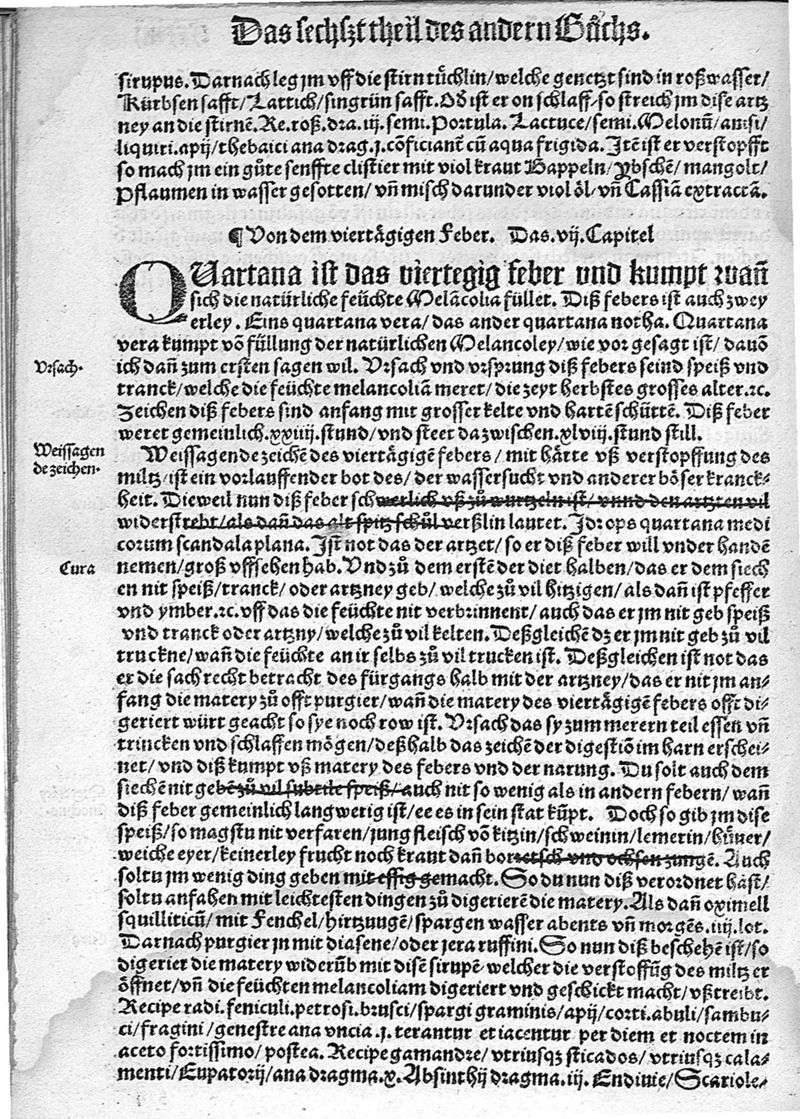 Das sechszt theil des andern Bůchs.
sirupus. Darnach leg jm vff die stirn tüchlin/welche genetzt sind in roßwasser/
Kürbsen safft/Lattich/singrün safft. Od̄ ist er on schlaff/so streich jm dise artz
ney an die stirnē. Re. roß. dra. iij. semi. Portula. Lactuce/semi. Melonū/anisi/
liquiri. apij/thebaici ana drag. j. cōficiant cū aqua frigida. Jtē ist er verstopfft
so mach jm ein gůte senffte clistier mit viol kraut Bappeln/Ybschē/mangolt/
Pflaumen in wasser gesotten/vñ misch darunder viol öl/vñ Cassiā extractā.
¶ Von dem viertägigen Feber. Das .vij. Capitel
QUartana ist das viertegig feber vnd kumpt wañ
sich die natürliche feüchte Melācolia füllet. Diß febers ist auch zwey
erley. Eins quartana vera/das ander quartana notha. Quartana
vera kumpt vō füllung der natürlichen Melancoley/wie vor gesagt ist/dauō
Vrsach.
ich dañ zum ersten sagen wil. Vrsach vnd vrsprung diß febers seind speiß vnd
tranck/welche die feüchte melancoliā meret/die zeyt herbstes grosses alter. ꝛc.
Zeichen diß febers sind anfang mit grosser kelte vnd hartē schüttē. Diß feber
weret gemeinlich .xxiiij. stund/vnd steet da zwischen .xlviij. stund still.
Weissagen
de zeichen.
Weissagende zeichē des viertägigē febers/mit härte vß verstopffung des
miltz/ist ein vorlauffender bot des/der wassersucht vnd anderer böser kranck-
heit. Dieweil nun diß feber schwerlich vß zů wurtzeln ist/vnnd den artzten vil
widerstrebt/als dañ das alt spitz schůl verßlin lautet. Jdrops quartana medi
corum scandala plana. Jst not das der artzet/so er diß feber will vnder handē
Cura
nemen/groß vffsehen hab. Vnd zů dem erstē der diet halben/das er dem siech
en nit speiß/tranck/oder artzney geb/welche zů vil hitzigen/als dañ ist pfeffer
vnd ymber. ꝛc. vff das die feüchte nit verbrinnent/auch das er jm nit geb speiß
vnd tranck oder artzny/welche zů vil kelten. Deßgleichē dz er jm nit geb zů vil
truckne/wañ die feüchte an ir selbs zů vil trucken ist. Deßgleichen ist not das
er die sach recht betracht des fürgangs halb mit der artzney/das er nit im an-
fang die matery zů offt purgier/wañ die matery des viertägigē febers offt di-
geriert würt geacht so sye noch row ist. Vrsach das sy zum merern teil essen vñ
trincken vnd schlaffen mögen/deßhalb das zeichē der digestiō im harn erschei-
net/vnd diß kumpt vß matery des febers vnd der narung. Du solt auch dem
siechē nit gebē zů vil subtile speiß/auch nit so wenig als in andern febern/wañ
diß feber gemeinlich langwerig ist/ee es in sein stat kūpt. Doch so gib jm dise
speiß/so magstu nit verfaren/jung fleisch vō kitzin/schweinin/lemerin/hüner/
weiche eyer/keinerley frucht noch kraut dañ borretsch vnd ochsen zungē. Auch
soltu jm wenig ding geben mit essig gemacht. So du nun diß verordnet hast/
soltu anfahen mit leichtesten dingen zů digerierē die matery. Als dañ oximell
squilliticū/mit Fenchel/hirtzungē/spargen wasser abents vñ morgēs .iiij. lot.
Darnach purgier jn mit diasene/oder jera ruffini. So nun diß beschehē ist/so
digerier die matery widerūb mit disē sirupē/welcher die verstoffūg des miltz er
öffnet/vñ die feüchten melancoliam digeriert vnd geschickt macht/vßtreibt.
Recipe radi. feniculi. petrosi. brusci/spargi graminis/apij/corti. abuli/sambu-
ci/fragini/genestre ana vncia .j. terantur et iacentur per diem et noctem in
aceto fortissimo/postea. Recipe gamandre/vtriusqꝫ sticados/vtriusqꝫ cala-
menti/Eupatorij/ana dragma .x. Absinthij dragma .iij. Endiuie/Scariole-